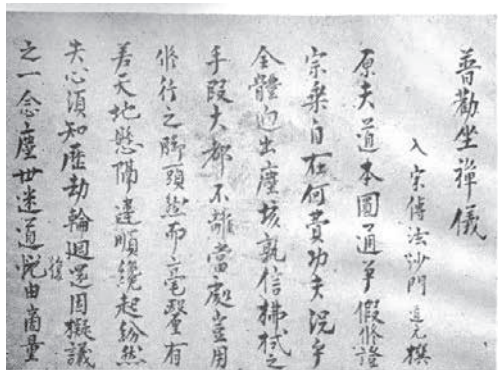 普勸坐禪儀
入宋傳法沙門道元撰
原夫道本圓通爭假修證
宗乘自在何費功夫況乎
全體迥出塵埃孰信拂拭之
手段大都不離當處豈用
修行之脚頭然而毫釐有
差天地懸隔違順纔起紛然
失心須知歷劫輪迴還因擬議
之一念塵世迷道復由商量